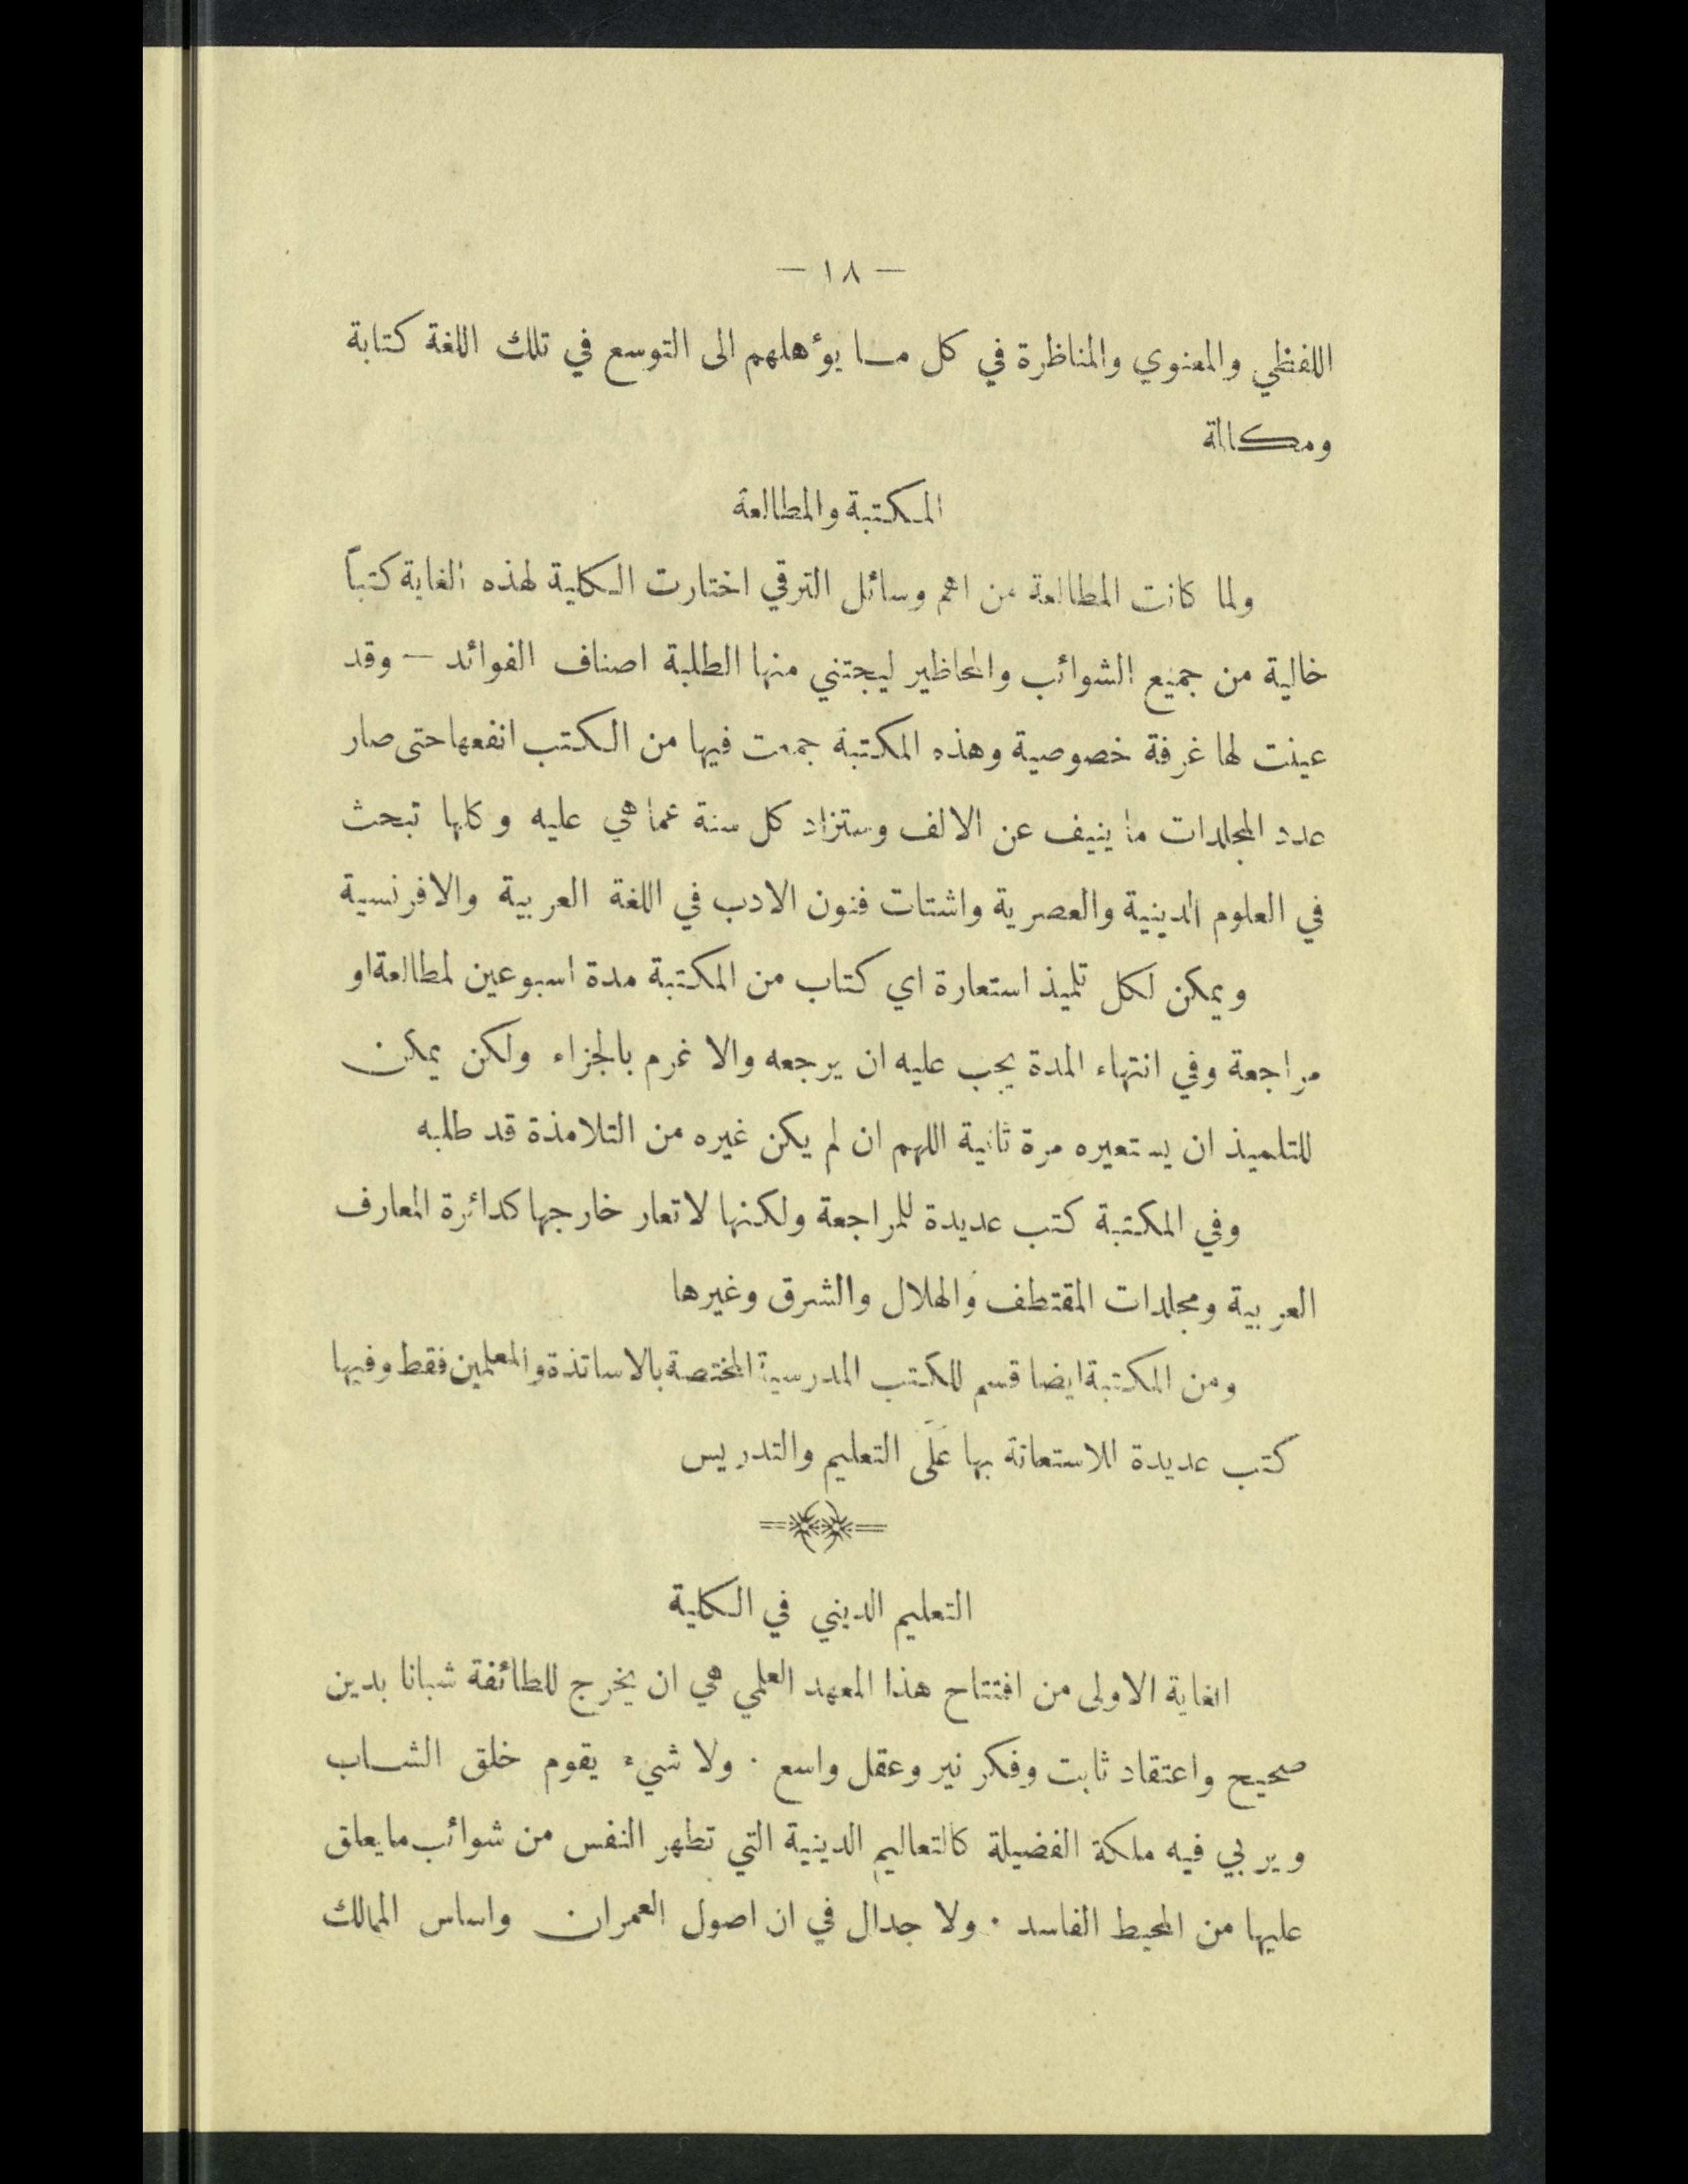 — ١٨ —
اللفظي والمعنوي والمناظرة في كل مـا يوٴهلهم الى التوسع في تلك اللغة كتابة
ومكالمة
المكتبة والمطالعة
ولما كانت المطالعة من اهم وسائل الترقي اختارت الكلية لهذه الغاية كتباً
خالية من جميع الشوائب والمحاظير ليجتني منها الطلبة اصناف الفوائد — وقد
عينت لها غرفة خصوصية وهذه المكتبة جمعت فيها من الكتب انفعها حتى صار
عدد المجلدات ما ينيف عن الالف وستزاد كل سنة عما هي عليه وكلها تبحث
في العلوم الدينية والعصرية واشتات فنون الادب في اللغة العربية والافرنسية
ويمكن لكل تلميذ استعارة اي كتاب من المكتبة مدة اسبوعين لمطالعة او
مراجعة وفي انتهاء المدة يجب عليه ان يرجعه والا غرم بالجزاء ولكن يمكن
للتلميذ ان يستعيره مرة ثانية اللهم ان لم يكن غيره من التلامذة قد طلبه
وفي المكتبة كتب عديدة للمراجعة ولكنها لا تعار خارجها كدائرة المعارف
العربية ومجلدات المقتطف والهلال والشرق وغيرها
ومن المكتبة ايضا قسم للكتب المدرسية المختصة بالاساتذة والمعلمين فقط وفيها
كتب عديدة للاستعانة بها عَلَى التعليم والتدريس
التعليم الديني في الكلية
الغاية الاولى من افتتاح هذا المعهد العلمي هي ان يخرج للطائفة شبانا بدين
صحيح واعتقاد ثابت وفكر نير وعقل واسع . ولا شيء يقوم خلق الشـاب
ويربي فيه ملكة الفضيلة كالتعاليم الدينية التي تطهر النفس من شوائب ما يعلق
عليها من المحيط الفاسد . ولا جدال في ان اصول العمران واساس الممالك